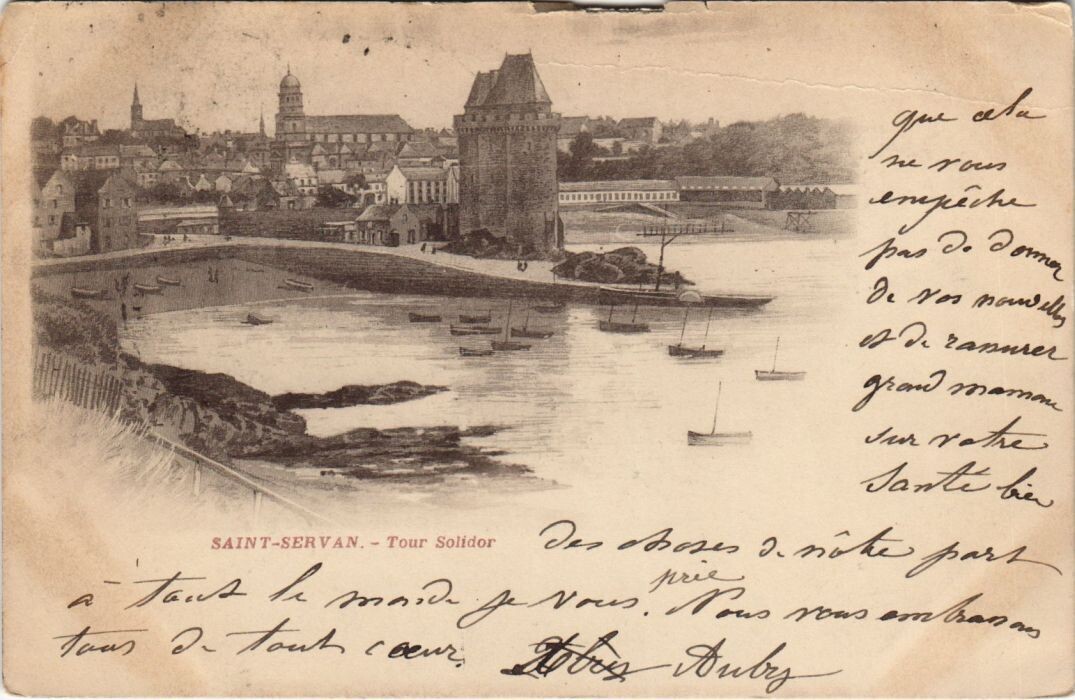 que cela
ne vous
empêche
pas de donner
de vos nouvelles
et de rassurer
grand maman
sur votre
Santé bien
SAINT-SERVAN. - Tour Solidor
des choses de nôtre part
à tout le monde je vous prie. Nous vous embrassons
tous de tout cœur.
Auby